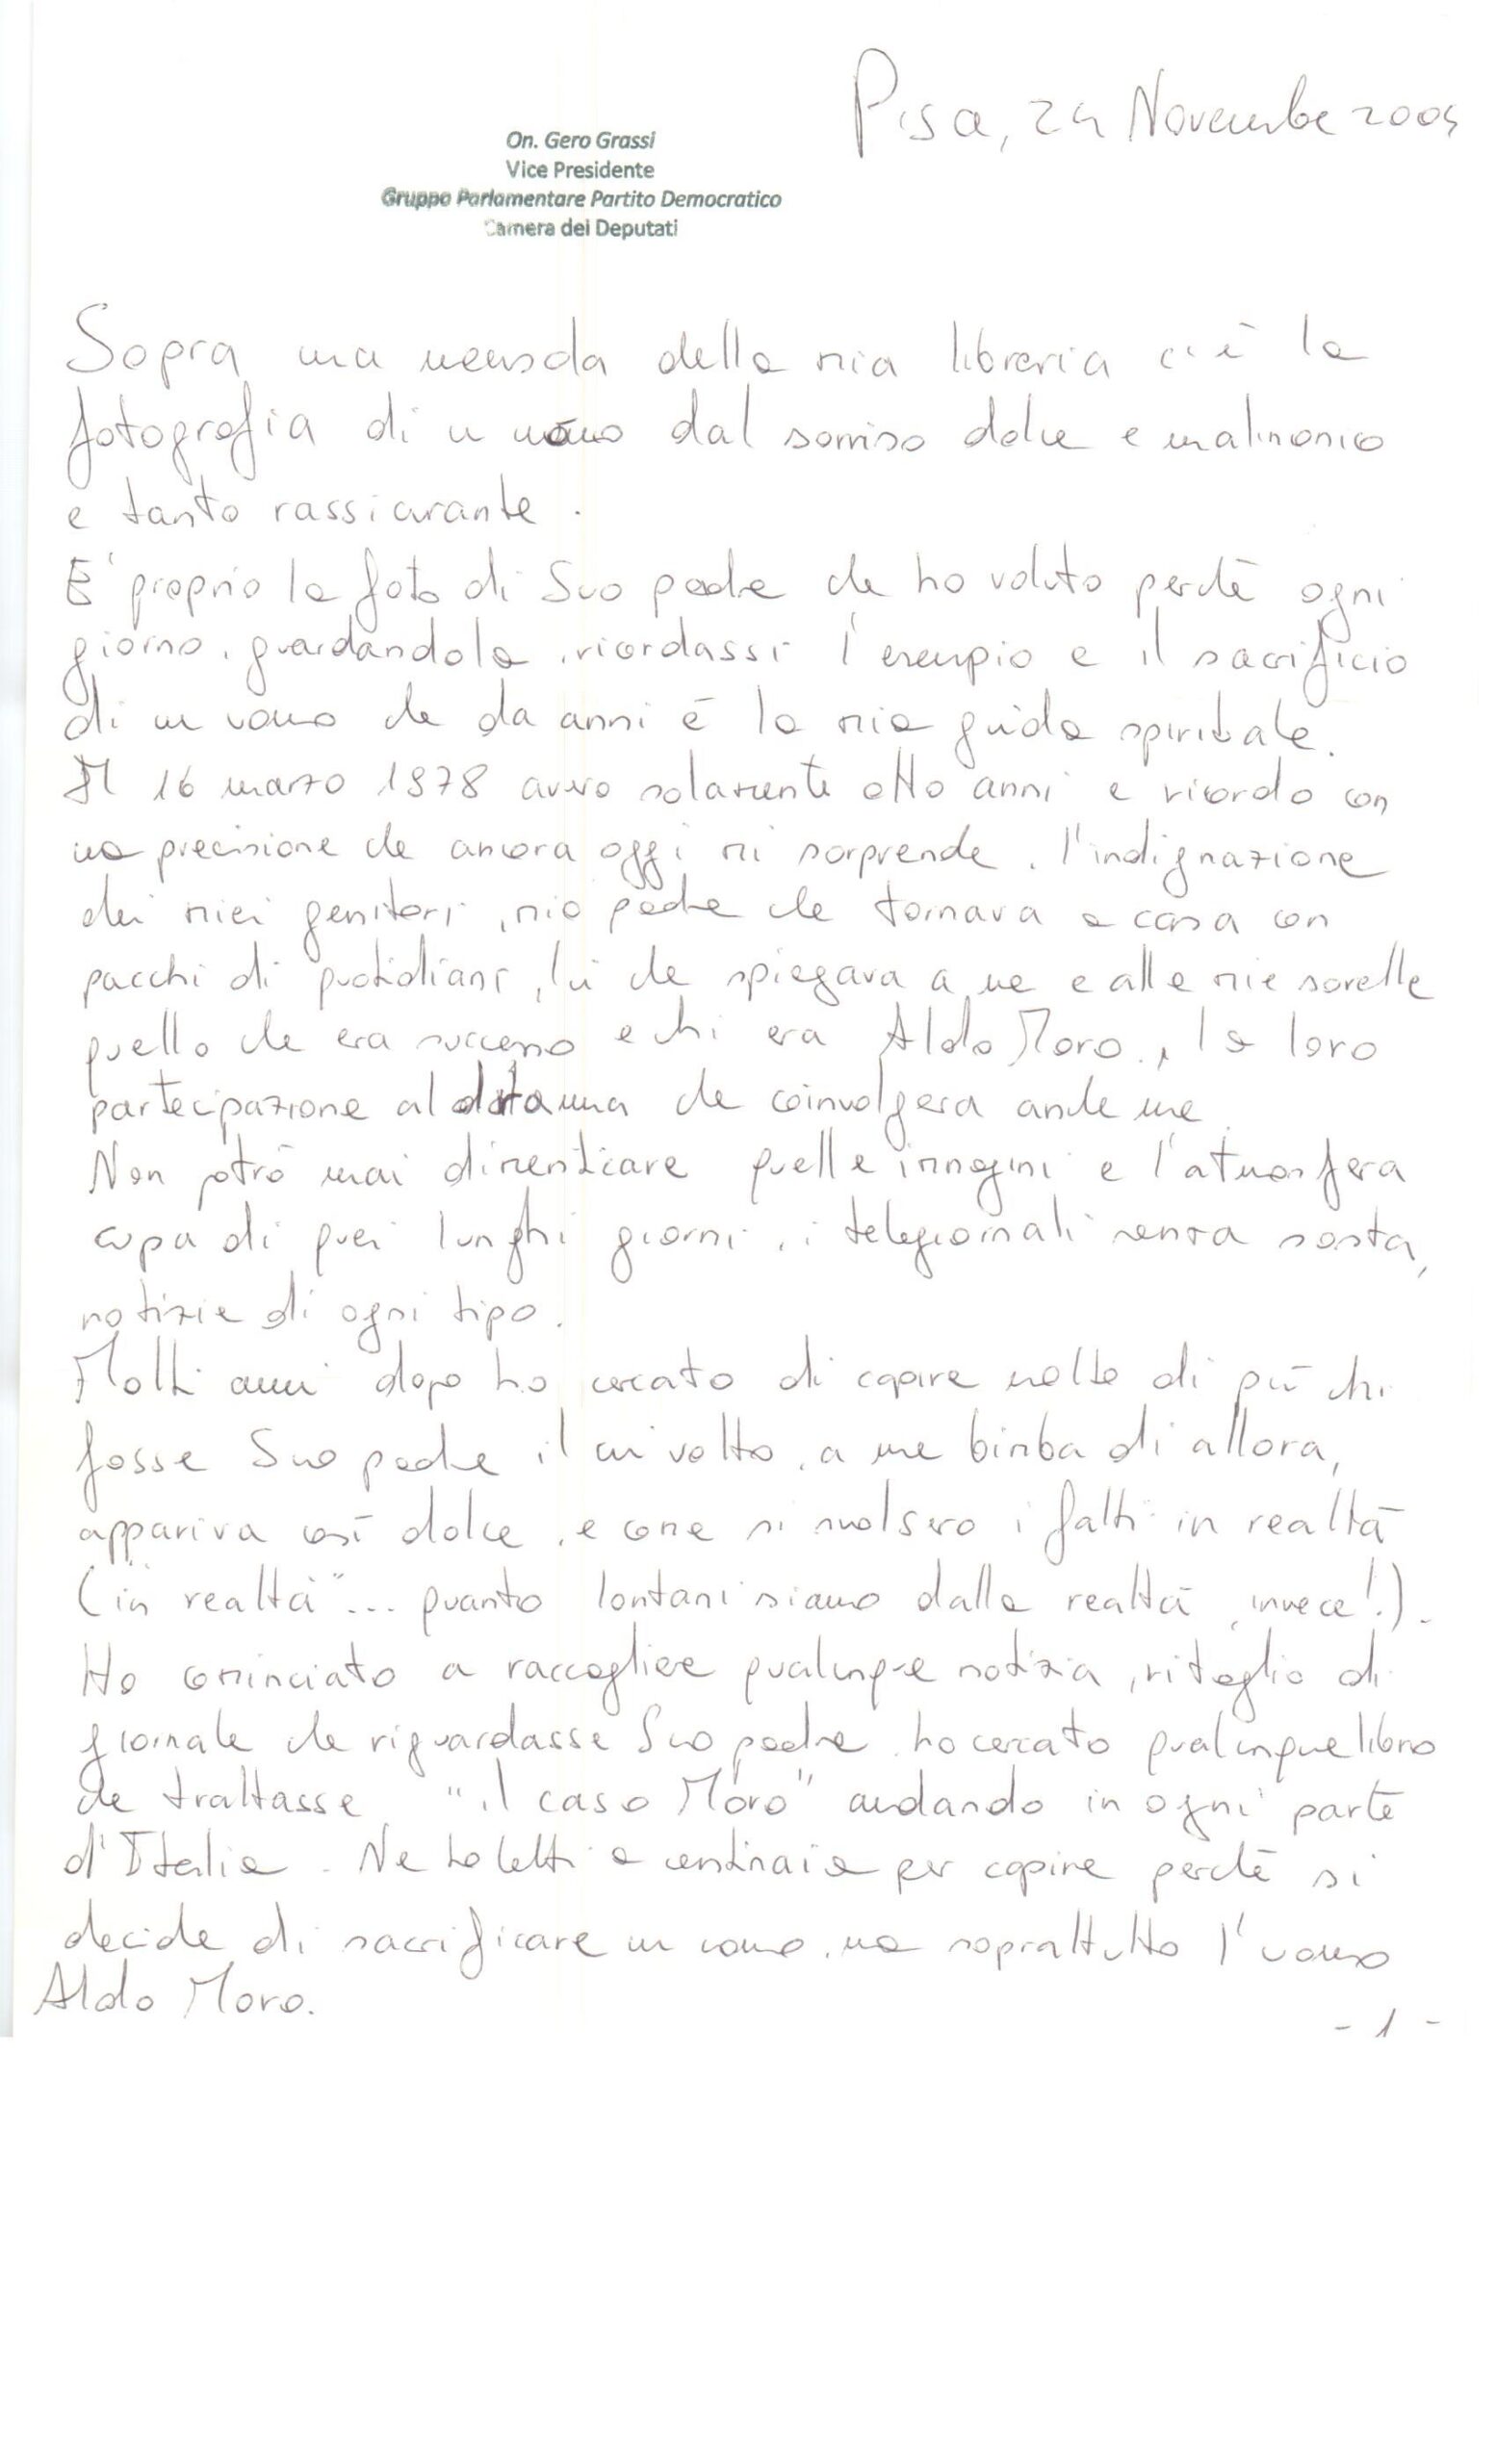 Pisa, 24 Novembre 2005
On. Gero Grassi
Vice Presidente
Gruppo Parlamentare Partito Democratico
Camera dei Deputati
Sopra una mensola della mia libreria c'è la
fotografia di un uomo dal sorriso dolce e malinconico
e tanto rassicurante.
E' proprio la foto di Suo padre che ho voluto perchè ogni
giorno, guardandola, ricordassi l'esempio e il sacrificio
di un uomo che da anni è la mia guida spirituale.
Il 16 marzo 1978 avevo solamente otto anni e ricordo con
una precisione che ancora oggi mi sorprende, l'indignazione
dei miei genitori, mio padre che tornava a casa con
pacchi di quotidiani, lui che spiegava a me e alle mie sorelle
quello che era successo e chi era Aldo Moro, la loro
partecipazione al dramma che coinvolgeva anche me.
Non potrò mai dimenticare quelle immagini e l'atmosfera
cupa di quei lunghi giorni, i telegiornali senza sosta,
notizie di ogni tipo.
Molti anni dopo ho cercato di capire molto di più chi
fosse Suo padre il cui volto, a me bimba di allora,
appariva così dolce, e come si svolsero i fatti in realtà
("in realtà"... quanto lontani siamo dalla realtà, invece!).
Ho cominciato a raccogliere qualunque notizia, ritaglio di
giornale che riguardasse Suo padre, ho cercato qualunque libro
che trattasse "il caso Moro" andando in ogni parte
d'Italia. Ne ho letti a centinaia per capire perchè si
decide di sacrificare un uomo, ma soprattutto l'uomo
Aldo Moro.
- 1 -